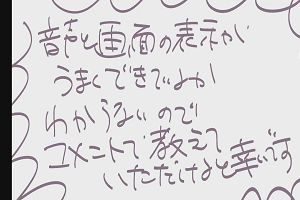 音声と画面の表示が
うまくできてるか
わからないので
コメントで教えて
いただけると幸いです